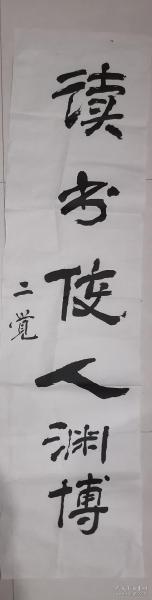 读书使人渊博
二觉